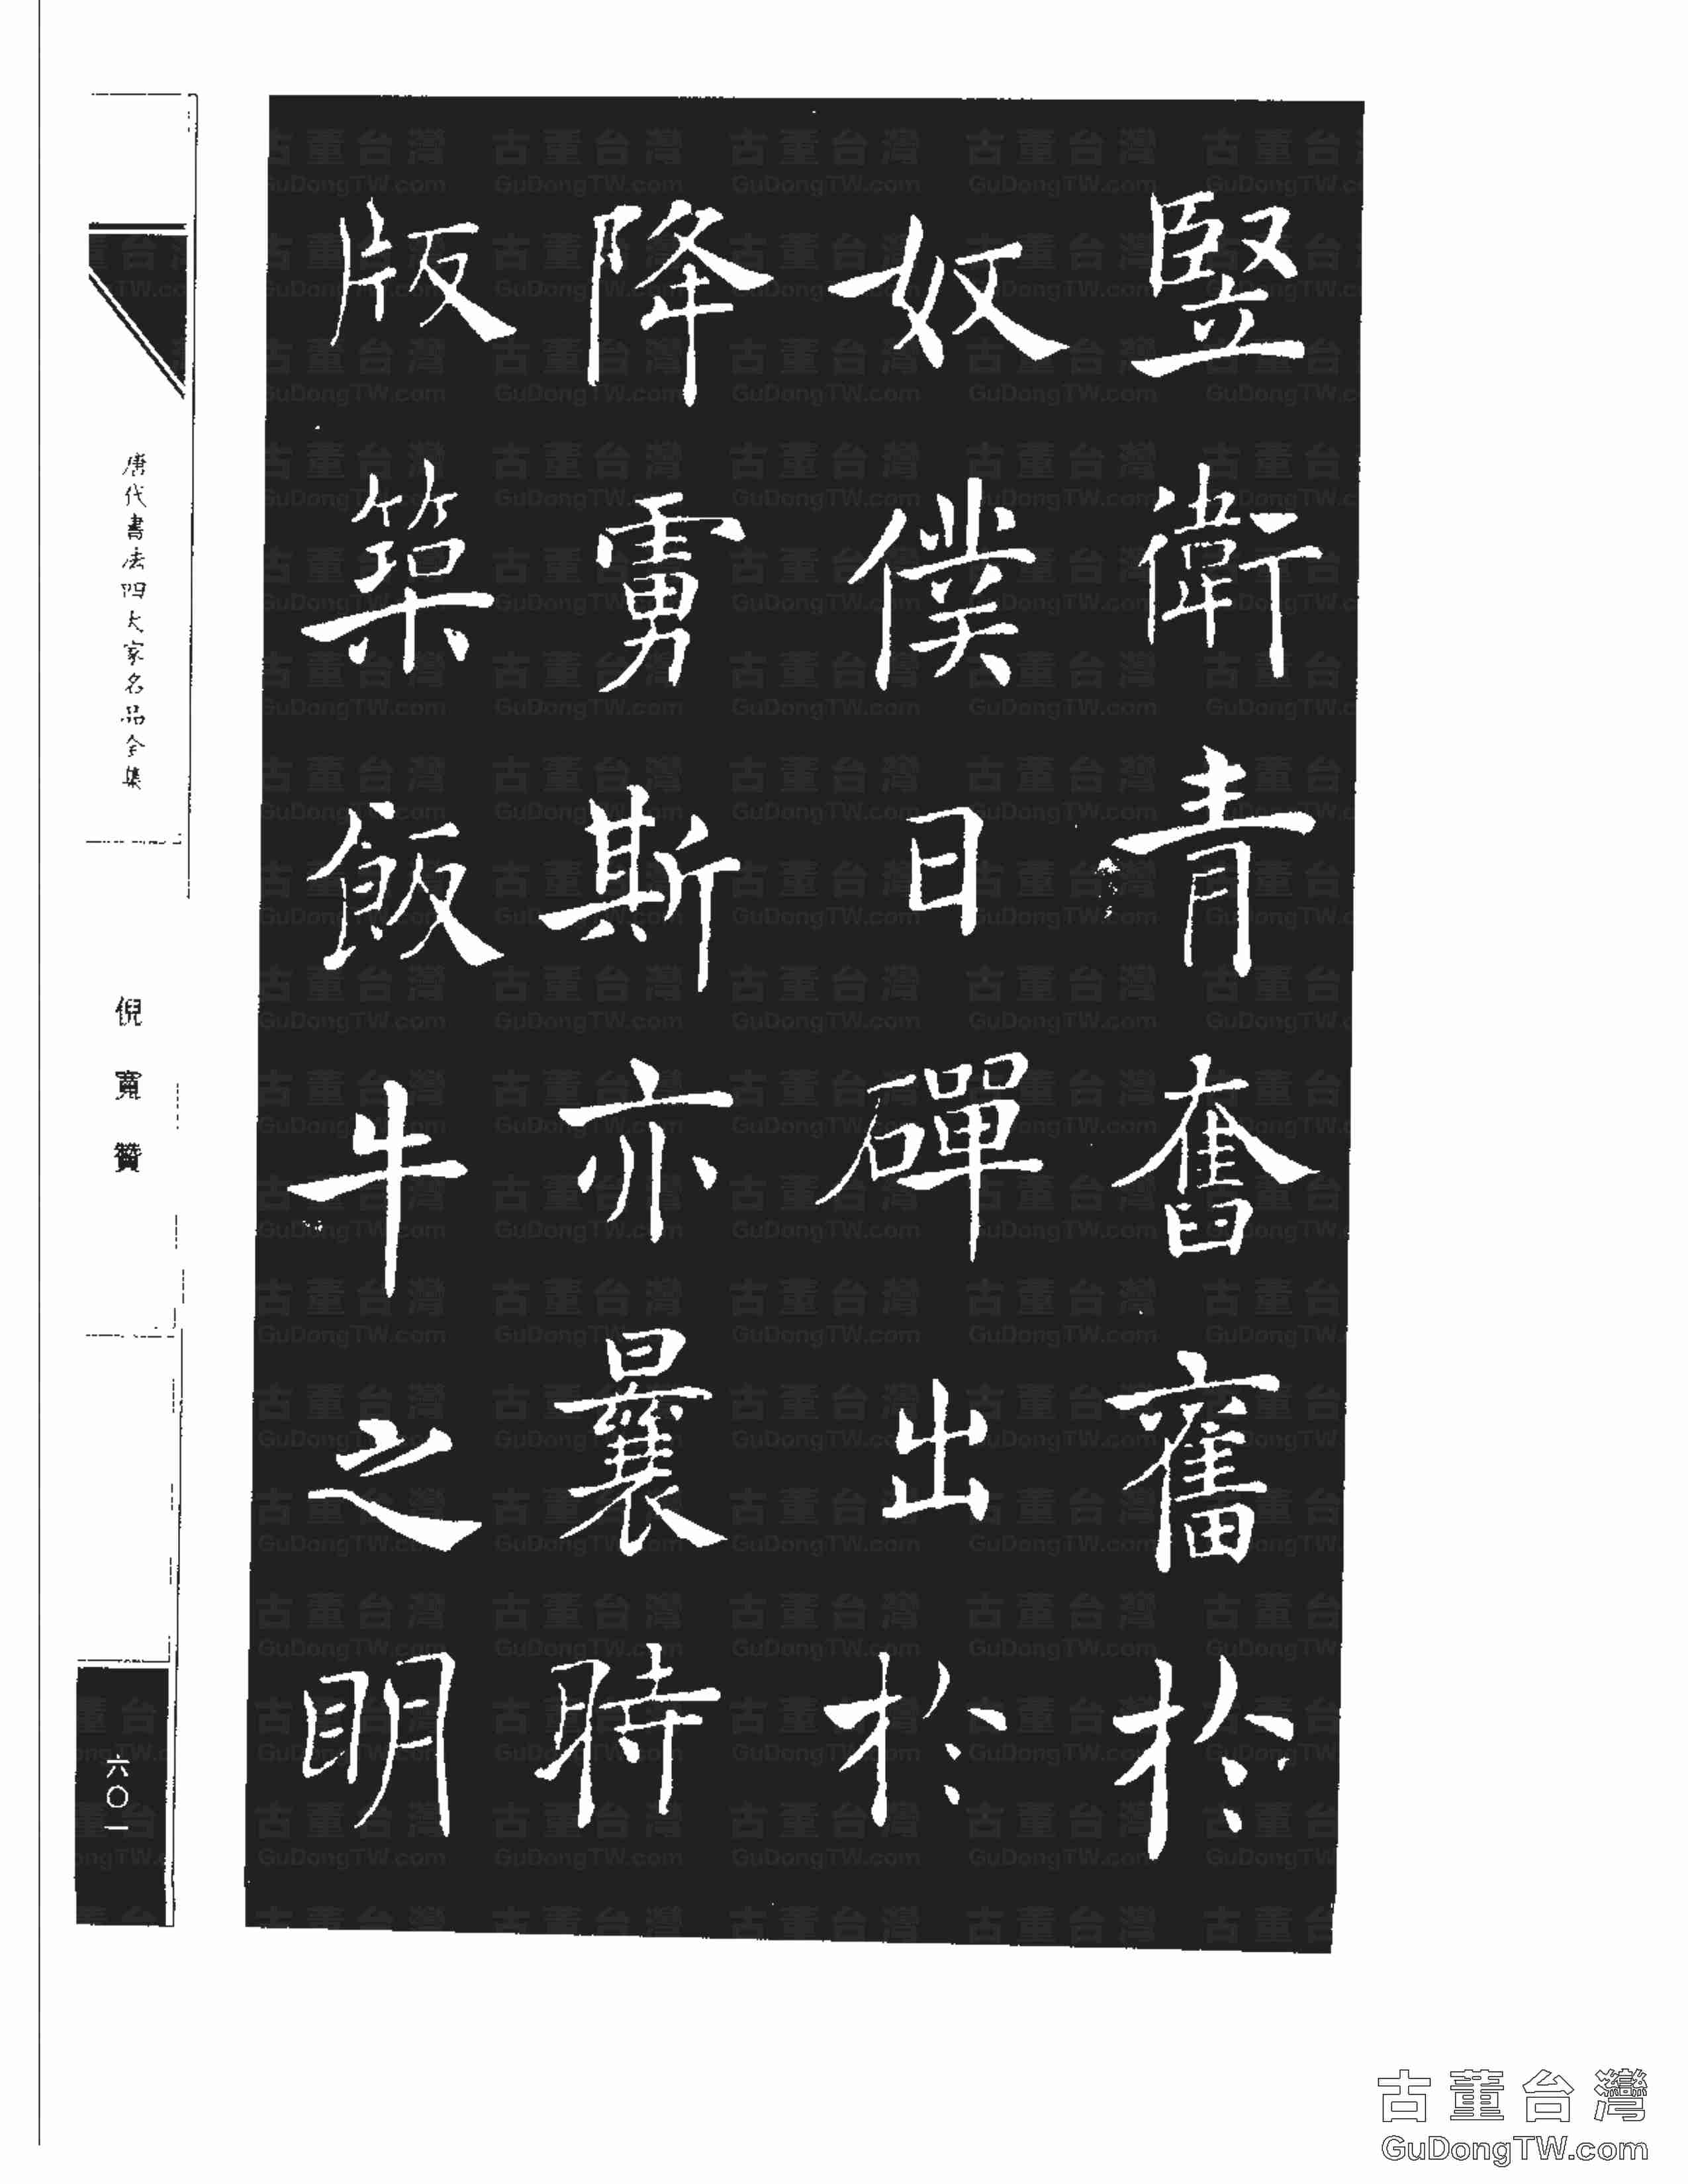 竪衛青奮舊於
奴僕日磾出於
降虜斯亦曩時
版築飯牛之明
唐代書法四大家名品全集
倪寬贊
六〇一
古董台灣
GuDongTW.com